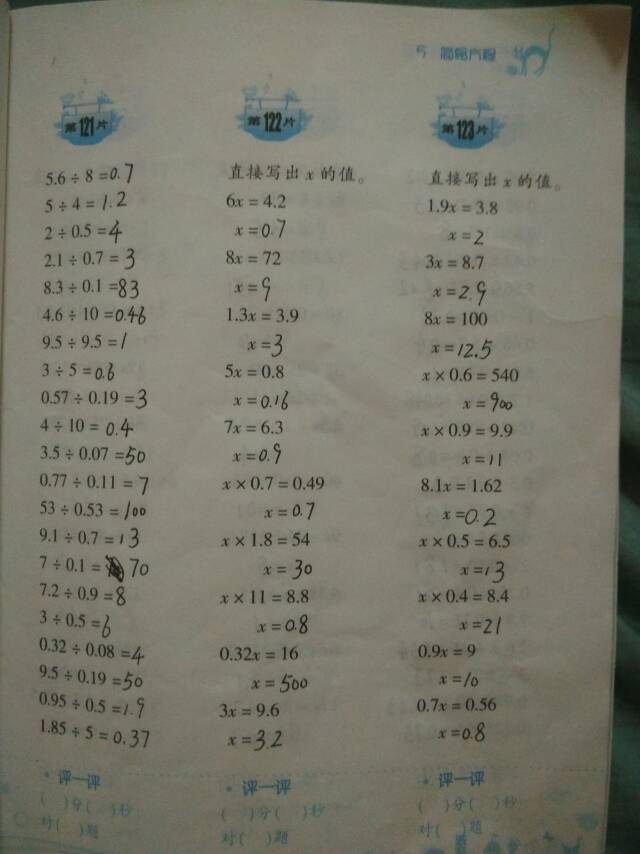 5 简易方程
第121片
5.6 ÷ 8 = 0.7
5 ÷ 4 = 1.2
2 ÷ 0.5 = 4
2.1 ÷ 0.7 = 3
8.3 ÷ 0.1 = 83
4.6 ÷ 10 = 0.46
9.5 ÷ 9.5 = 1
3 ÷ 5 = 0.6
0.57 ÷ 0.19 = 3
4 ÷ 10 = 0.4
3.5 ÷ 0.07 = 50
0.77 ÷ 0.11 = 7
53 ÷ 0.53 = 100
9.1 ÷ 0.7 = 13
7 ÷ 0.1 = 70
7.2 ÷ 0.9 = 8
3 ÷ 0.5 = 6
0.32 ÷ 0.08 = 4
9.5 ÷ 0.19 = 50
0.95 ÷ 0.5 = 1.9
1.85 ÷ 5 = 0.37
评一评
( )分( )秒
对( )题
第122片
直接写出 x 的值。
6x = 4.2
x = 0.7
8x = 72
x = 9
1.3x = 3.9
x = 3
5x = 0.8
x = 0.16
7x = 6.3
x = 0.9
x × 0.7 = 0.49
x = 0.7
x × 1.8 = 54
x = 30
x × 11 = 8.8
x = 0.8
0.32x = 16
x = 500
3x = 9.6
x = 3.2
评一评
( )分( )秒
对( )题
第123片
直接写出 x 的值。
1.9x = 3.8
x = 2
3x = 8.7
x = 2.9
8x = 100
x = 12.5
x × 0.6 = 540
x = 900
x × 0.9 = 9.9
x = 11
8.1x = 1.62
x = 0.2
x × 0.5 = 6.5
x = 13
x × 0.4 = 8.4
x = 21
0.9x = 9
x = 10
0.7x = 0.56
x = 0.8
评一评
( )分( )秒
对( )题